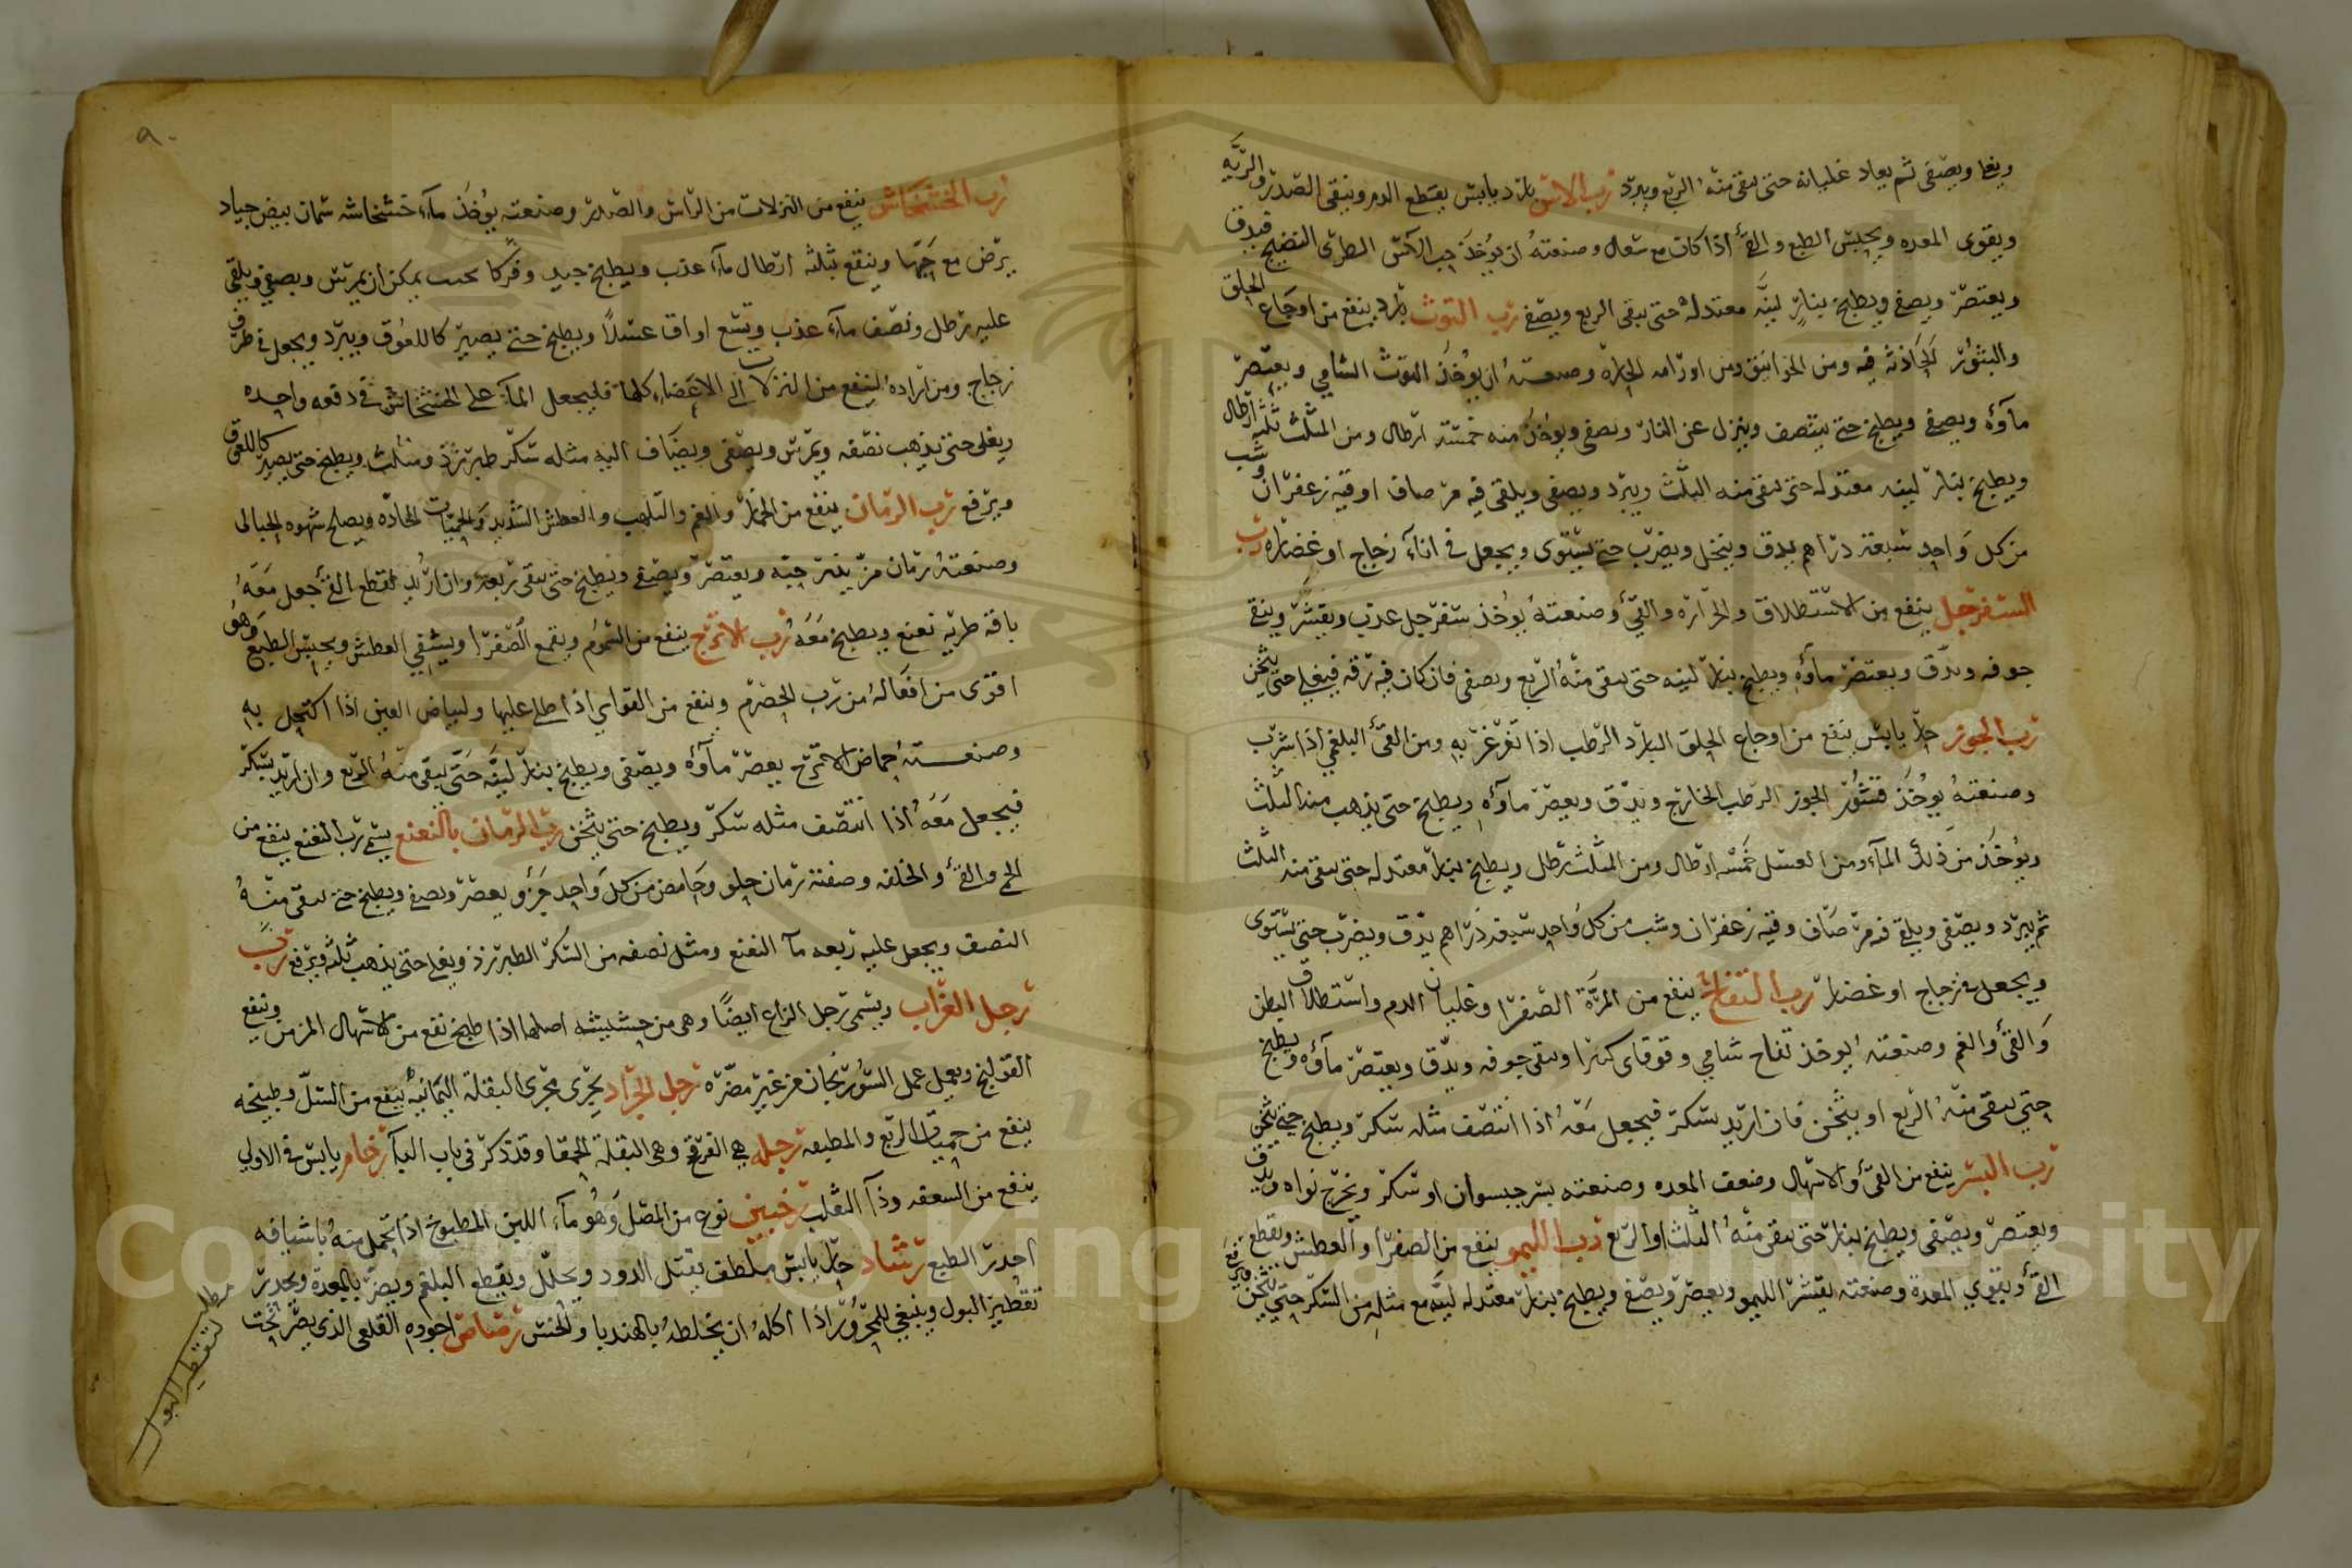 ويغلى ويصفى ثم يعاد غليانه حتى يبقى منه الربع ويبرد رب الاس بارد يابس يقطع الدم وينقى الصدر والريه
ويقوى المعده ويحبس الطبع والقئ اذا كان مع سعال وصنعته ان يؤخذ حب الآس الطرى النضيج فيدق
ويعتصر ويصفى ويطبخ بنار لينه معتدله حتى يبقى الربع ويصفى رب التوث بارد ينفع من اوجاع الحلق
والبثور الحادثه فيه ومن الخوانيق ومن اورامه الحاره وصنعته ان يؤخذ التوث الشامي ويعتصر
مآؤه ويصفى ويطبخ حتى ينتصف وينزل عن النار ويصفى ويؤخذ منه خمسة ارطال ومن المثلث ثلثه ارطال
ويطبخ بنار لينه معتدله حتى يبقى منه الثلث ويبرد ويصفى ويلقى فيه مر صاف اوقيه زعفران وشب
من كل واحد سبعة دراهم يدق وينخل ويضرب حتى يستوى ويجعل في انآء زجاج او غضاره رب
السفرجل ينفع من الاستطلاق والحراره والقئ وصنعته يؤخذ سفرجل عذب ويقشر وينقى
جوفه ويدق ويعتصر مآؤه ويطبخ بنار لينه حتى يبقى منه الربع ويصفى فان كان فيه رقه فيغلى حتى يثخن
رب الجوز حار يابس ينفع من اوجاع الحلق البارد الرطب اذا تغرغر به ومن القئ البلغمي اذا شرب
وصنعته يؤخذ قشور الجوز الرطب الخارج ويدق ويعصر مآؤه ويطبخ حتى يذهب منه الثلث
ويؤخذ من ذلك المآء ومن العسل خمسه ارطال ومن المثلث رطل ويطبخ بنار معتدله حتى يبقى منه الثلث
ثم يبرد ويصفى ويلقى فيه مر صاف وقيه زعفران وشب من كل واحد سبعة دراهم يدق ويضرب حتى يستوى
ويجعل في زجاج او غضار رب التفاح ينفع من المرة الصفرا وغليان الدم واستطلاق البطن
والقئ والغم وصنعته يؤخذ تفاح شامي وقوقاى كبرا وينقى جوفه ويدق ويعتصر مآؤه ويطبخ
حتى يبقى منه الربع او يثخن فان اريد بسكر فيجعل معه اذا انتصف مثله سكر ويطبخ حتى يثخن
رب البسر ينفع من القئ والاسهال وضعف المعده وصنعته بسر جيسوان او سكر ويخرج نواه ويدق
ويعتصر ويصفى ويطبخ بنار حتى يبقى منه الثلث او الربع رب الليمو ينفع من الصفرا والعطش ويقطع
القئ ويقوي المعدة وصنعته يقشر الليمو ويعصر ويصفى ويطبخ بنار معتدله لينه مع مثله من السكر حتى يثخن ويرفع
٩٠
رب الخشخاش ينفع من النزلات من الراس والصدر وصنعته يؤخذ مآء خشخاشه سمان بيض جياد
يرض مع حبها وينقع بثلثه ارطال مآء عذب ويطبخ جيد وفركا بحيث يمكن ان يمرس ويصفى ويلقى
عليه رطل ونصف مآء عذب وتسع اواق عسلاً ويطبخ حتى يصير كاللعوق ويبرد ويجعل في ظرف
زجاج ومن اراده لينفع من النزلات الى الاعضاء كلها فليجعل المآء على الخشخاش في دفعه واحده
ويغلى حتى يذهب نصفه ويمرس ويصفى ويضاف اليه مثله سكر طبرزذ ومثلث ويطبخ حتى يصير كاللعوق
ويرفع رب الرمان ينفع من الخمار والغم والتلهب والعطش الشديد والحميات الحاده ويصلح شهوه الحبالى
وصنعته رمان مز ينثر حبه ويعتصر ويصفى ويطبخ حتى يبقى ربعه وان اريد لقطع القئ جعل معه
باقه طريه نعنع ويطبخ معه رب الاترج ينفع من السموم ويقمع الصفرا ويشفي العطش ويحبس الطبع وهو
اقوى من افعاله من رب الحصرم وينفع من القوابي اذا طلى عليها ولبياض العين اذا اكتحل به
وصنعته حماض الاترج يعصر مآؤه ويصفى ويطبخ بنار لينه حتى يبقى منه الربع وان اريد بسكر
فيجعل معه اذا انتصف مثله سكر ويطبخ حتى يثخن رب الرمان بالنعنع يسمى رب النعنع ينفع من
الحمى والقئ والخلفه وصفته رمان حلو وحامض من كل واحد جزؤ يعصر ويصفى ويطبخ حتى يبقى منه
النصف ويجعل عليه ربعه مآ النعنع ومثل نصفه من السكر الطبرزذ ويغلى حتى يذهب ثلثه ويرفع رب
رجل الغراب ويسمى رجل الزاع ايضاً وهى من حشيشه اصلها اذا طبخ نفع من الاسهال المزمن وينفع
القولنج ويعمل عمل السورنجان من غير مضره رجل الجراد يجرى مجرى البقلة اليمانيه ينفع من السل وطبيخه
ينفع من حميات الربع والمطبقه رجله هى الفرفخ وهى البقلة الحمقا وقد ذكر فى باب البآ رخام يابس في الاولي
ينفع من السعفه ودآ الثعلب رخبين نوع من المصل وهو مآء اللبن المطبوخ اذا تحمل منه باشيافه
احدر الطبع رشاد حار يابس ملطف يقتل الدود ويحلل ويقطع البلغم ويضر بالمعدة ويحدر
تقطير البول وينبغي للمحرور اذا اكله ان يخلطه بالهندبا والخس رصاص اجوده القلعى الذى يصر تحت
مطلب لتقطير البول
Copyright © King Saud University
1957